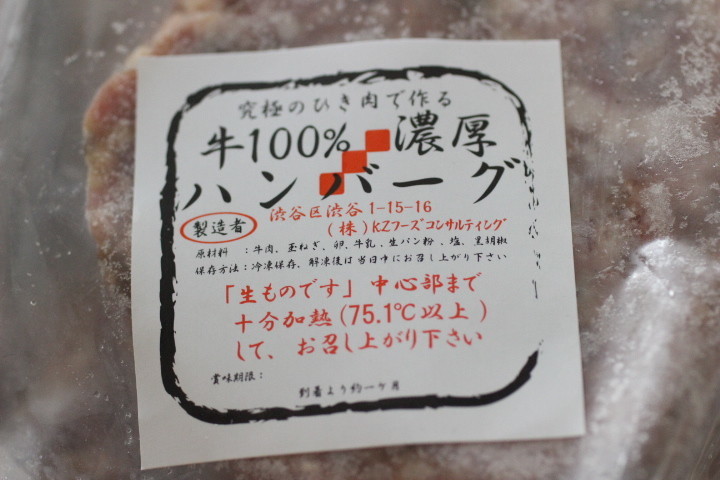 究極のひき肉で作る
牛100% 濃厚
ハンバーグ
製造者 渋谷区渋谷 1-15-16
(株)KZフーズコンサルティング
原材料 :牛肉、玉ねぎ、卵、牛乳、生パン粉、塩、黒胡椒
保存方法:冷凍保存、解凍後は当日中にお召し上がり下さい
「生ものです」中心部まで
十分加熱(75.1℃以上)
して、お召し上がり下さい
賞味期限:
到着より約一ヶ月